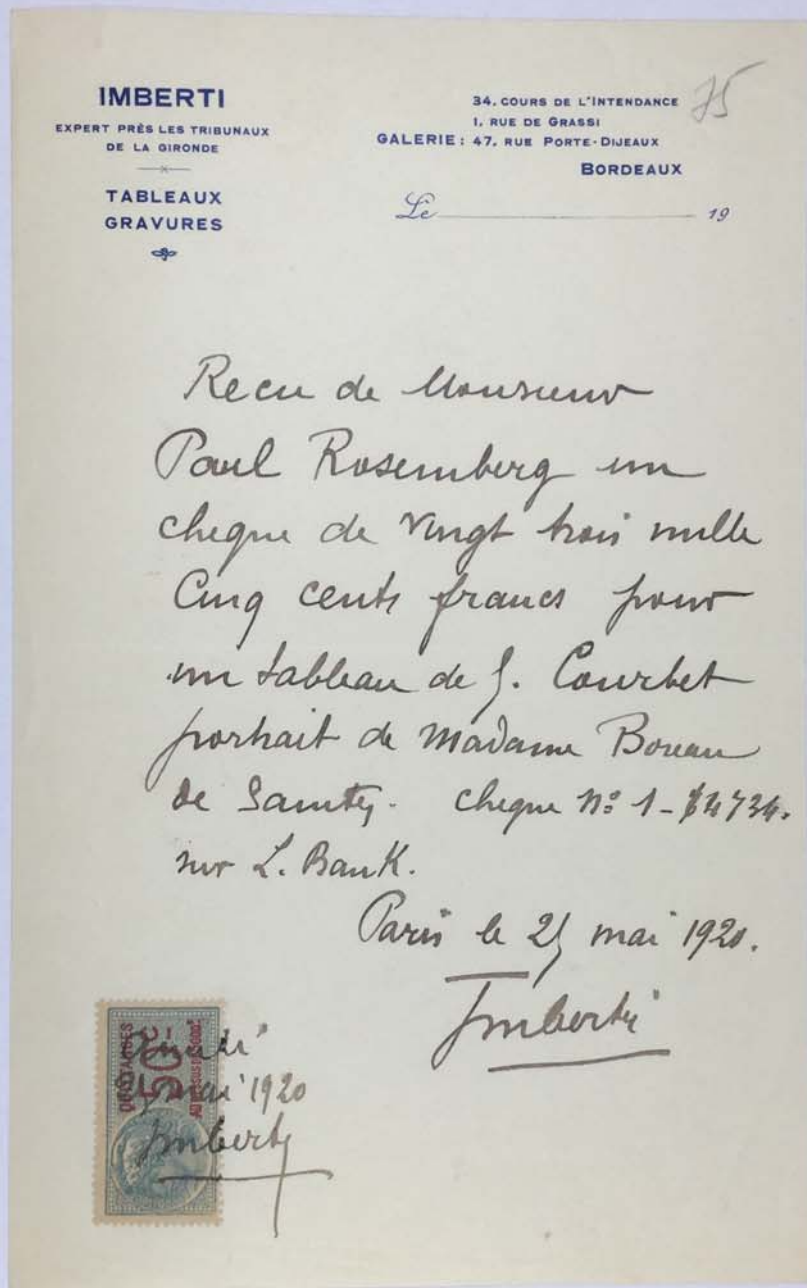 IMBERTI
EXPERT PRÈS LES TRIBUNAUX
DE LA GIRONDE
TABLEAUX
GRAVURES
34, COURS DE L'INTENDANCE
1, RUE DE GRASSI
GALERIE : 47, RUE PORTE-DIJEAUX
BORDEAUX
75
Le 19
Recu de Monsieur
Paul Rosemberg un
cheque de vingt trois mille
Cinq cents francs pour
un tableau de G. Courbet
portrait de Madame Boreau
de Sainty. cheque No 1-
sur L. Bank.
Paris le 25 mai 1920.
Imberti
QUITTANCES
50c
mai 1920
Imberti